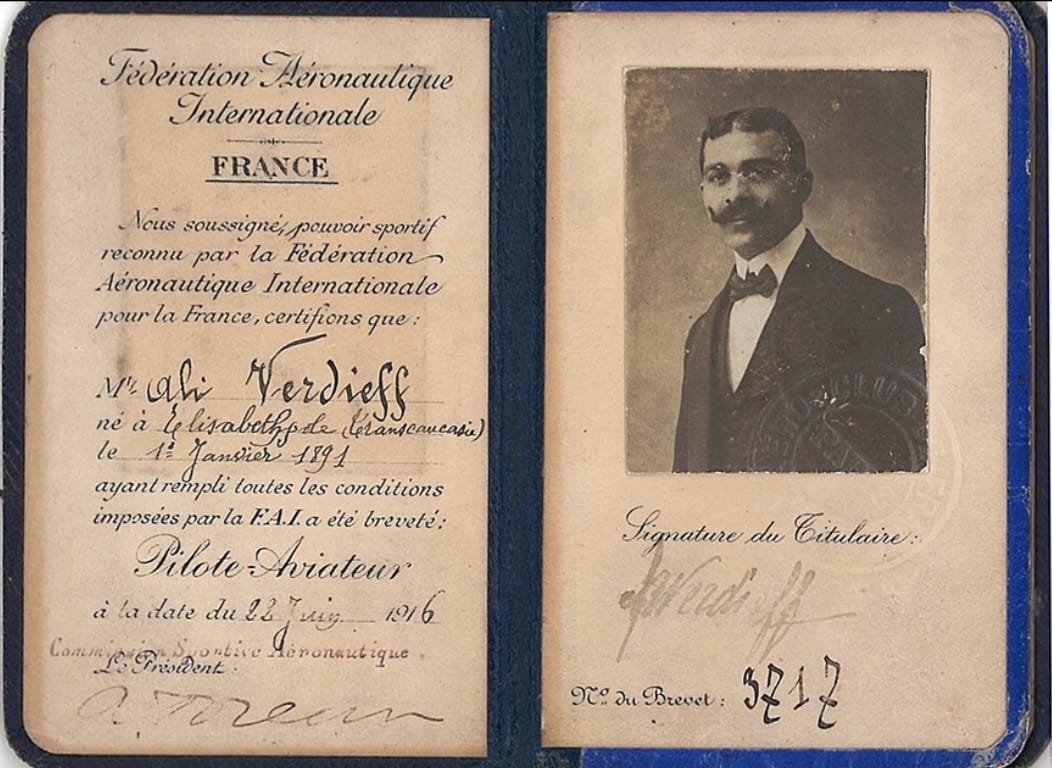 Fédération Aéronautique
Internationale
FRANCE
Nous soussigné, pouvoir sportif
reconnu par la Fédération
Aéronautique Internationale
pour la France, certifions que :
Mr. Ali Verdieff
né à Elisabethpole (Transcaucasie)
le 1er Janvier 1891
ayant rempli toutes les conditions
imposées par la F.A.I. a été breveté :
Pilote-Aviateur
à la date du 22 Juin 1916
Commission Sportive Aéronautique.
Le Président :
Signature du Titulaire :
Verdieff
No. du Brevet : 3717